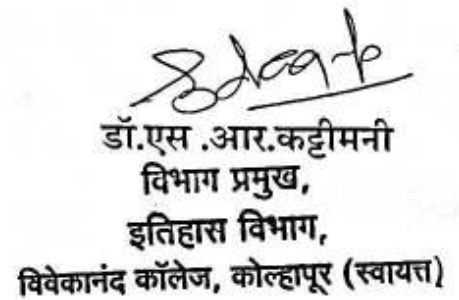 डॉ.एस .आर.कट्टीमनी
विभाग प्रमुख,
इतिहास विभाग,
विवेकानंद कॉलेज, कोल्हापूर (स्वायत्त)